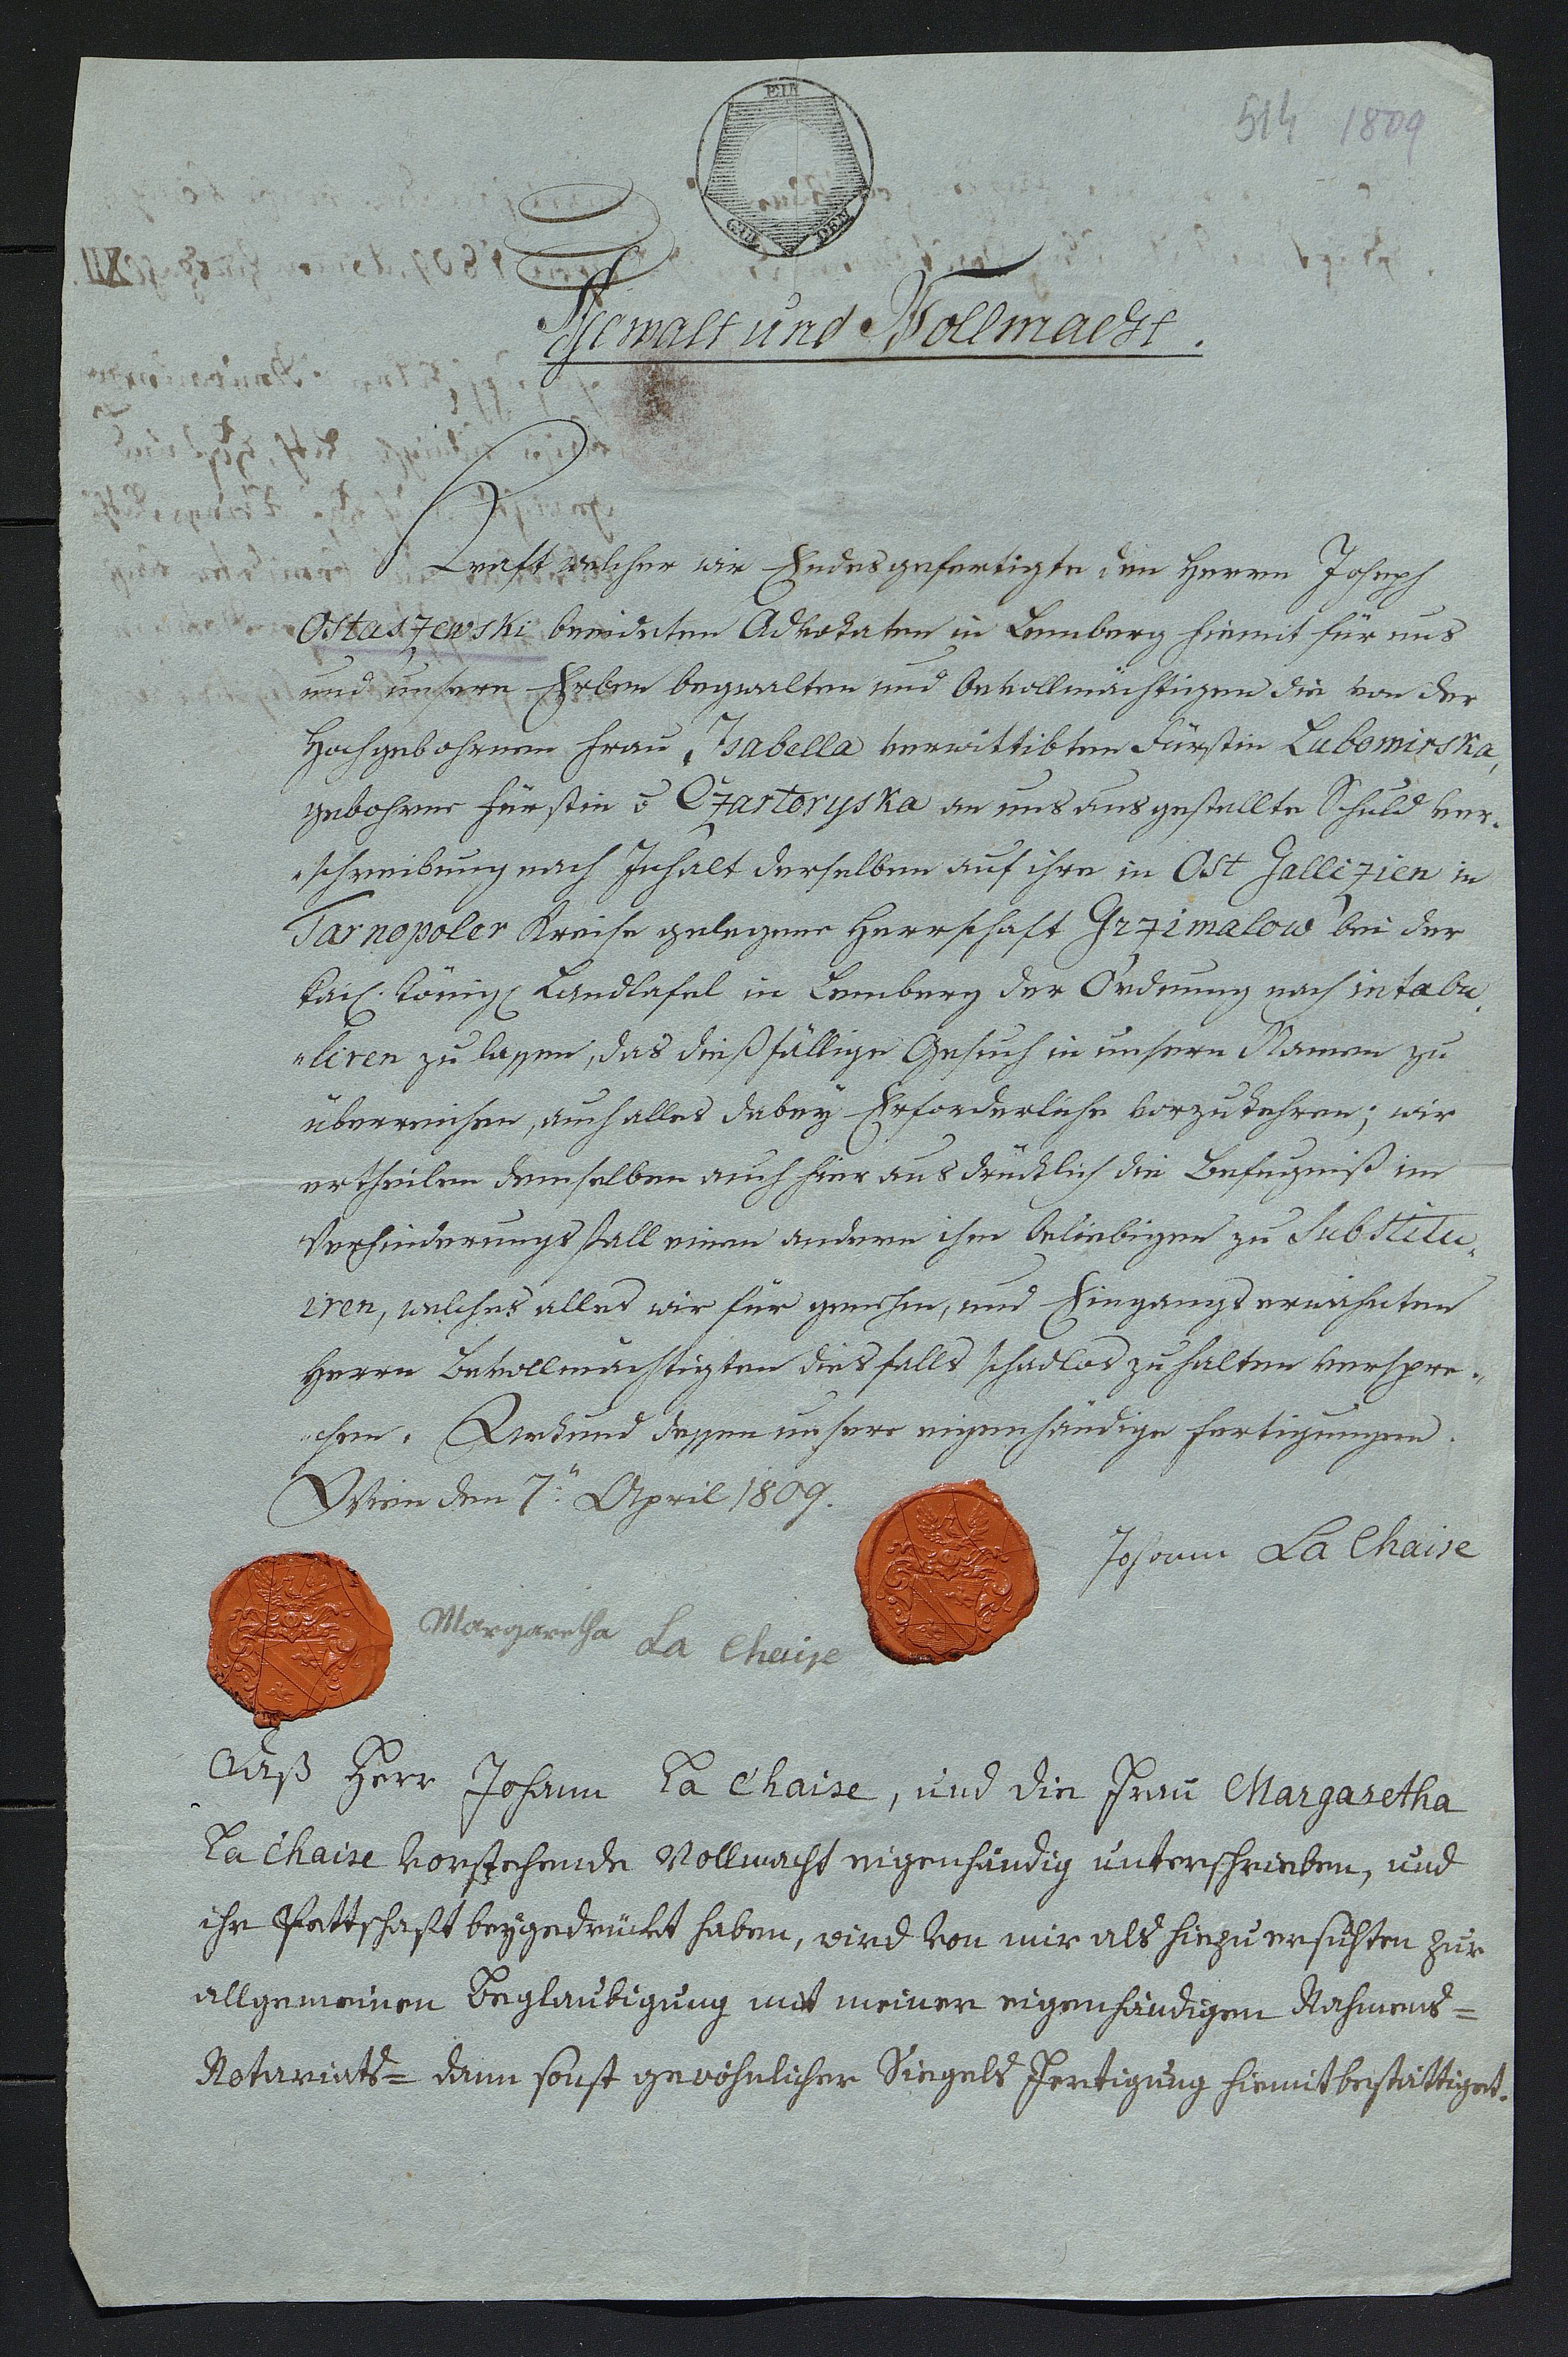 514 1809
EIN
GUL DEN
Gewalt und Vollmacht.
Kraft welcher wir Endesgefertigte den Herrn Joseph
Ostaszewski beeideten Advokaten in Lemberg hiemit für uns
und unsere Erben begwalten und bevollmächtigen die von der
Hochgebohrnen Frau Isabella verwittibten Fürstin Lubomirska,
gebohrne Fürstin Czartoryska an uns ausgestellte Schuld ver-
schreibung nach Inhalt derselben auf ihre in Ost Gallizien in
Tarnopoler Kreise gelegene Herrschaft Grzimalow bei der
kais. königl Landtafel in Lemberg der Ordnung nach intabu-
liren zu lassen, das dießfällige Gesuch in unsern Namen zu
überreichen, auch alles dabey Erforderliche vorzukehren; wir
ertheilen demselben auch hier ausdrücklich die Befugniß im
Verhinderungsfall einen andern ihm beliebigen zu Substitu-
iren, welches alles wir für genehm, und Eingangs erwähnten
Herrn Bevollmächtigten diesfalls schadlos zu halten verspre-
chen. Urkund dessen unsere eigenhändige Fertigungen.
Wien den 7. April 1809.
Johann La Chaise
Margaretha La Chaise
Daß Herr Johann La Chaise, und die Frau Margaretha
La Chaise vorstehende Vollmacht eigenhändig unterschrieben, und
ihr Pettschaft beygedrückt haben, wird von mir als hiezu ersuchten zur
allgemeinen Beglaubigung mit meiner eigenhändigen Nahmens=
Notariats= dann sonst gewöhnlicher Siegels Fertigung hiemit bestättiget.